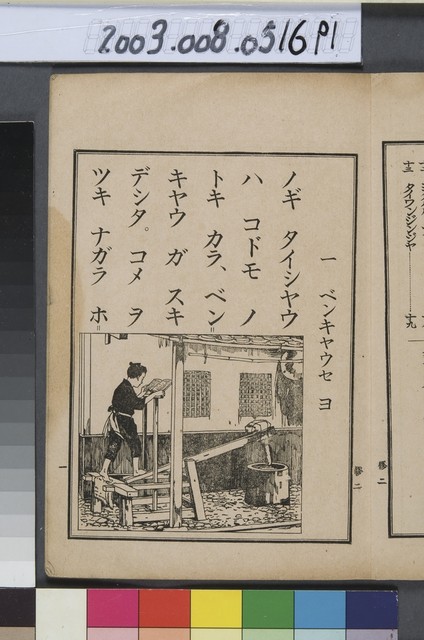 2003.008.0516P1
十三 タイワンジンジヤ 十九
修二
修二
一 ベンキヤウセヨ
ノギ タイシヤウ
ハ コドモ ノ
トキ カラ、ベン=
キヤウ ガ スキ
デシタ。コメ ヲ
ツキ ナガラ ホ=
一